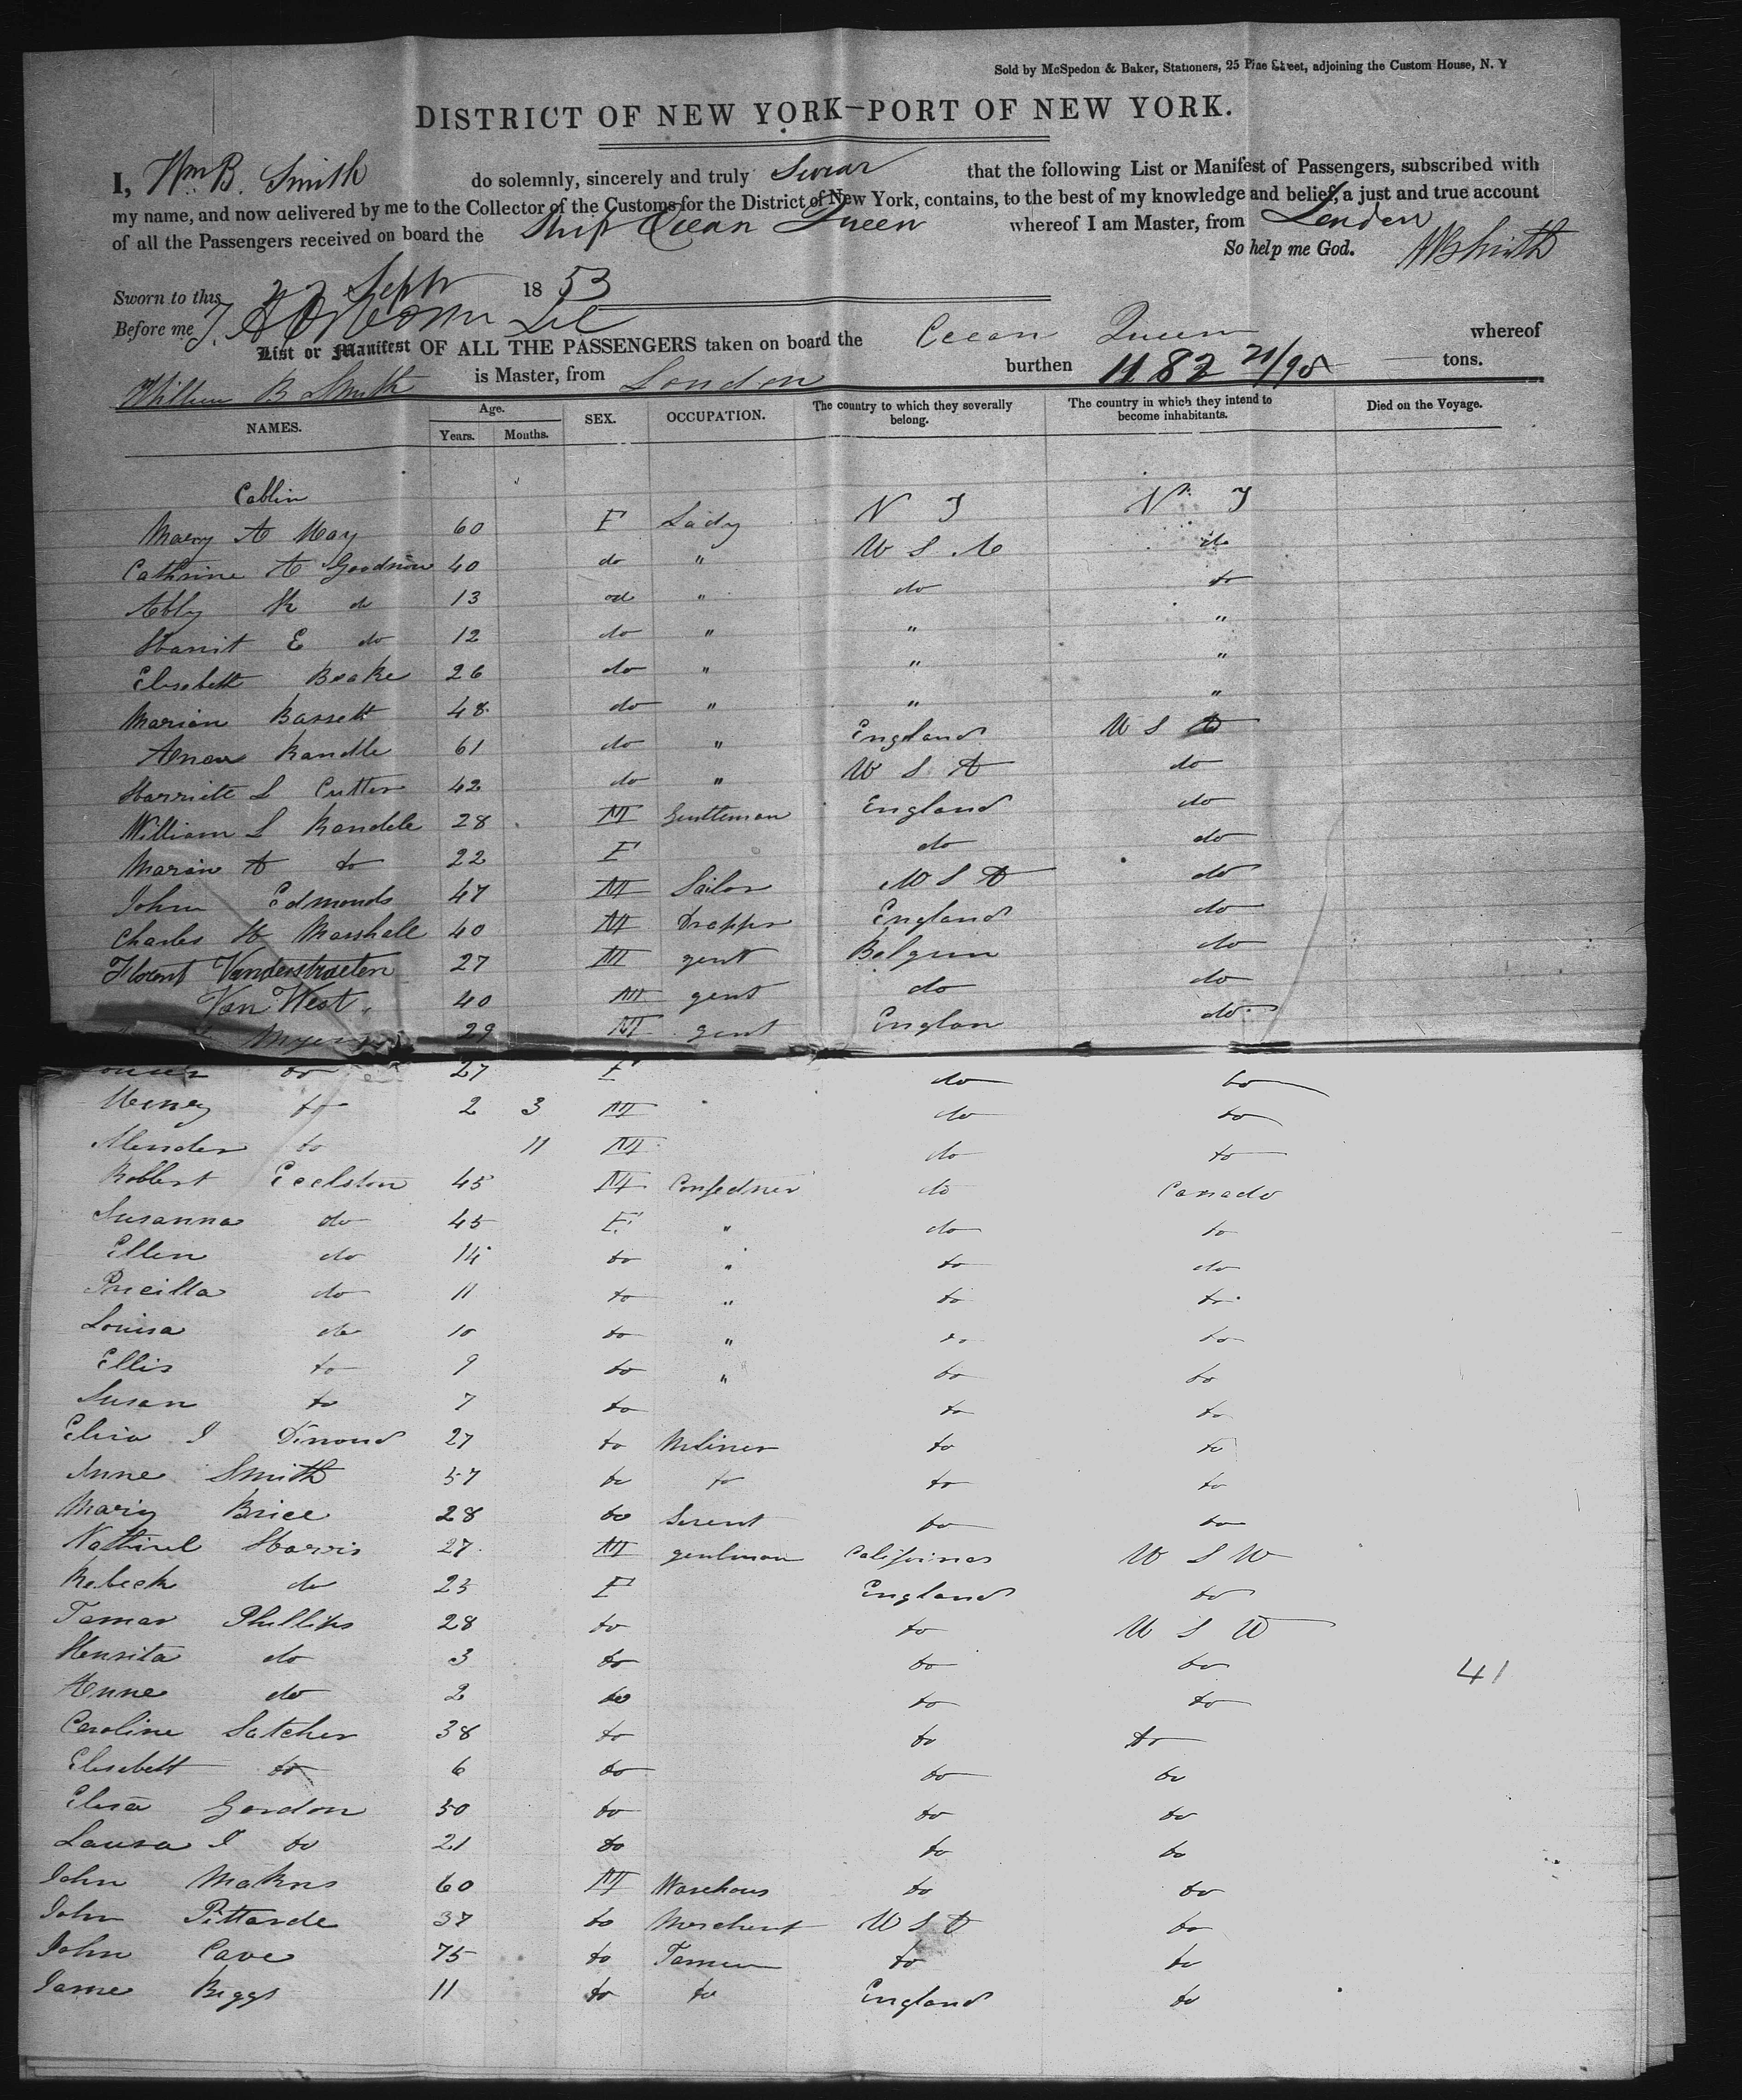 Sold by McSpedon & Baker, Stationers, 25 Pine Street, adjoining the Custom House, N. Y
DISTRICT OF NEW YORK—PORT OF NEW YORK.
I, Wm B. Smith do solemnly, sincerely and truly Swear that the following List or Manifest of Passengers, subscribed with
my name, and now delivered by me to the Collector of the Customs for the District of New York, contains, to the best of my knowledge and belief, a just and true account
of all the Passengers received on board the Ship Ocean Queen whereof I am Master, from London
So help me God. WB Smith
Sworn to this 22 Septr 1853
Before me
List or Manifest OF ALL THE PASSENGERS taken on board the Ocean Queen whereof
William B Smith is Master, from London burthen 1182 21/95 tons.
NAMES. Age. Years. Months. SEX. OCCUPATION. The country to which they severally belong. The country in which they intend to become inhabitants. Died on the Voyage.
Cabbin
Marry A May 60 F Lady N J N J
Cathrine A Goodnow 40 do " U S A do
Abby do 13 do " do do
Harrit E do 12 do " " "
Elisebett Beake 26 do " " "
Marian Bassett 48 do " " "
Randle 61 do " England U S A
Harriett L Cutter 42 do " U S A do
William L Randele 28 M Gentleman England do
Marian A do 22 F do do
John Edmonds 47 M Sailor U S A do
Charles H Marshall 40 M Drapper England do
Florent Vanderstraeten 27 M gent Belgium do
Van West 40 M gent do do
Myers 29 M gent Englan do
do 27 F do do
Henery do 2 3 M do do
do 11 M do do
Robbert Ecelston 45 M Confedner do Canado
Susanna do 45 F " do do
Ellen do 14 do " do do
Pricilla do 11 do " do do
Louisa do 10 do " do do
Ellis do 9 do " do do
Susan do 7 do do do
Elisa J Dimond 27 do Meliner do do
Anne Smith 57 do do do do
Mariy Brice 28 do Servent do do
Nathinel Harris 27 M genlman Califoirnas U S
Rebeck do 25 F England do
Tamar Phillips 28 do do U S
Henrita do 3 do do do 41
Anne do 2 do do do
Caroline Satcher 38 do do do
Elisebett do 6 do do do
Elisa Gordon 50 do do do
Laura J do 21 do do do
John Makns 60 M Warehous do do
John Pittarde 37 do Merchent U S A do
John Cave 75 do do do
Jame Biggs 11 do do England do